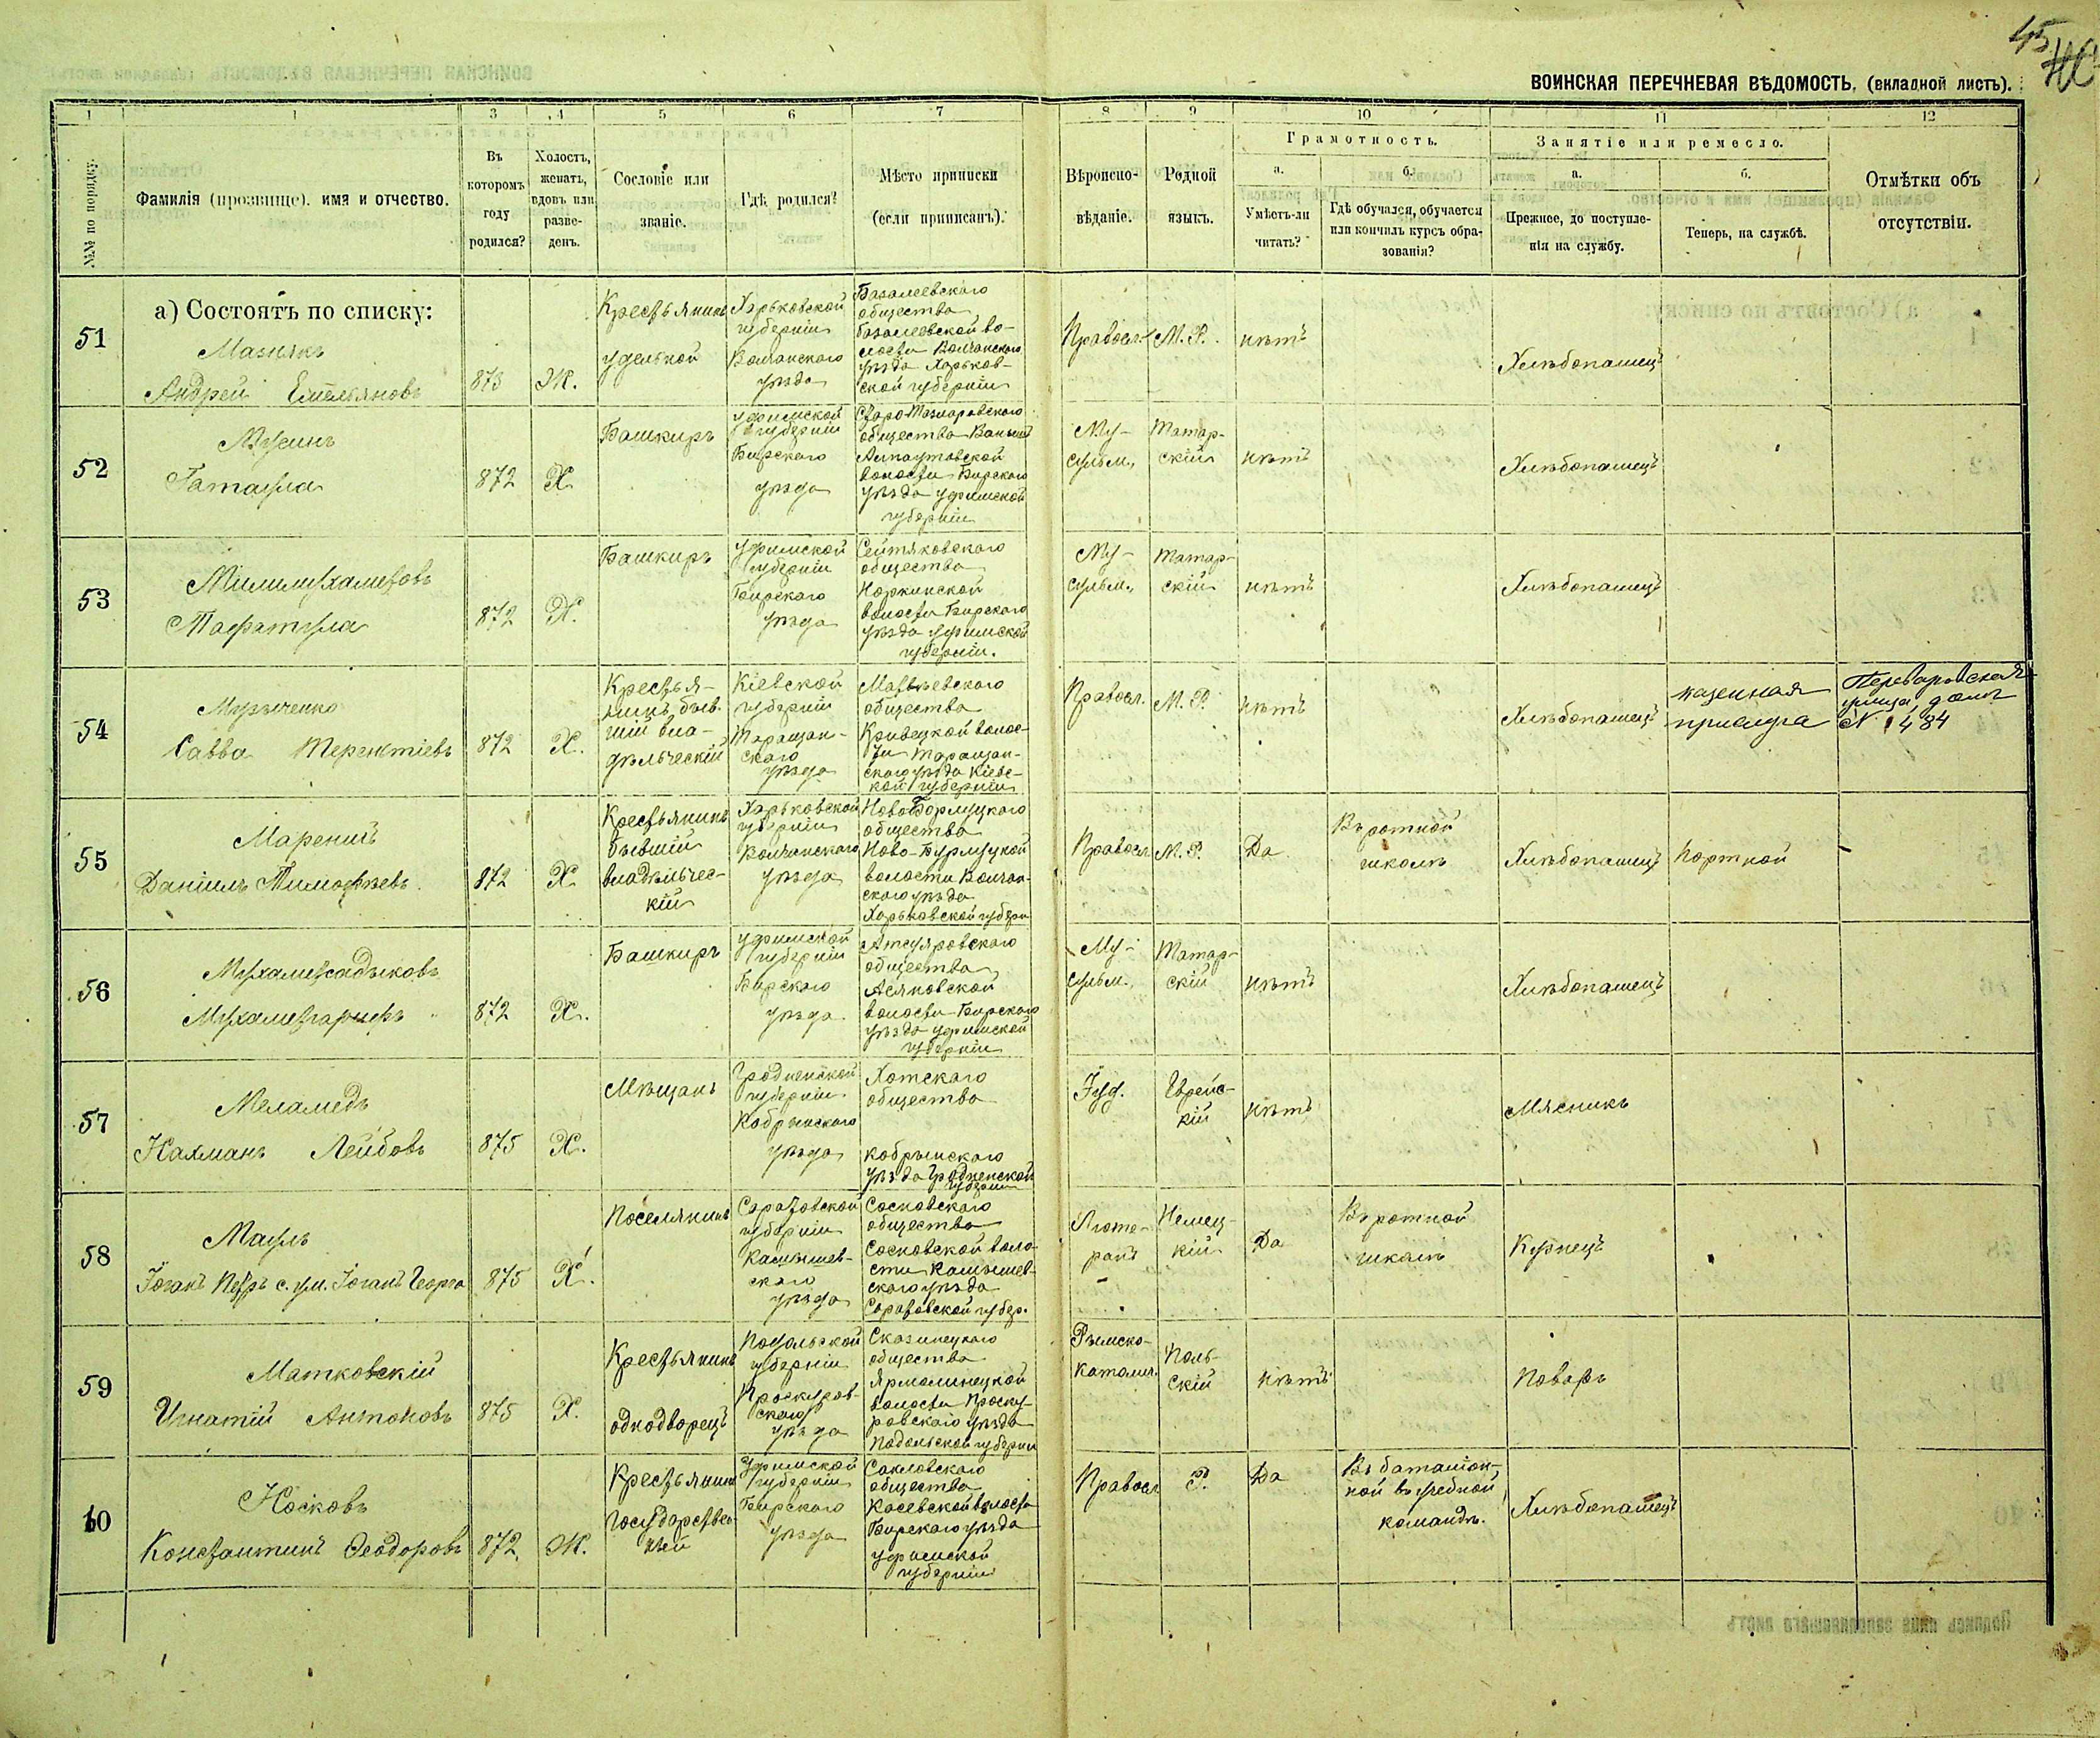 45
ВОИНСКАЯ ПЕРЕЧНЕВАЯ ВѢДОМОСТЬ. (вкладной листъ).
1 1 3 4 5 6 7 8 9 10 11 12
№№ по порядку.
Фамилія (прозвище), имя и отчество.
Въ которомъ году родился?
Холостъ, женатъ, вдовъ или разведенъ.
Сословіе или званіе.
Гдѣ родился?
Мѣсто приписки (если приписанъ).
Вѣроисповѣданіе.
Родной языкъ.
Грамотность.
а. Умѣетъ-ли читать?
б. Гдѣ обучался, обучается или кончилъ курсъ образованія?
Занятіе или ремесло.
а. Прежнее, до поступленія на службу.
б. Теперь, на службѣ.
Отмѣтки объ отсутствіи.
а) Состоятъ по списку:
51
Мазнякъ
Андрей Емельяновъ
873 Ж.
Крестьянинъ
удельной
Харьковской
губерніи
Волчанскаго
уѣзда
Базалеевскаго
общества
Базалеевской во-
лости Волчанскаго
уѣзда Харьков-
ской губерніи
Правосл. М.Р. нѣтъ
Хлѣбопашецъ
52
Мусинъ
Гатаула
872 Х
Башкиръ
Уфимской
губерніи
Бирскаго
уѣзда
общества
волости Бирскаго
уѣзда Уфимской
губерніи
Му-
сульм.
Татар-
скій
нѣтъ
Хлѣбопашецъ
53
872 Х.
Башкиръ
Уфимской
губерніи
Бирскаго
уѣзда
Сейтяковскаго
общества
Норкинской
волости Бирскаго
уѣзда Уфимской
губерніи.
Му-
сульм.
Татар-
скій
нѣтъ
Хлѣбопашецъ
54
Савва Терентіевъ
872 Х.
Крестья-
нинъ быв-
шій вла-
дѣльческій
Кіевской
губерніи
Таращан-
скаго
уѣзда
Матвѣевскаго
общества
Кривецкой волос-
ти Таращан-
скаго уѣзда Кіевс-
кой губерніи
Правосл. М.Р. нѣтъ
Хлѣбопашецъ
казенная
прислуга
улица, домъ
№ 1484
55
Даніилъ Тимофѣевъ.
872 Х
Крестьянинъ
бывшій
владѣльчес-
кій
Харьковской
губерніи
Волчанскаго
уѣзда
общества
волости Волчан-
скаго уѣзда
Харьковской губерн
Правосл. М.Р. Да
Въ ротной
школѣ
Хлѣбопашецъ
Портной
56
Мухаметсадыковъ
872 Х.
Башкиръ
Уфимской
губерніи
Бирскаго
уѣзда
общества
Асяновской
волости Бирскаго
уѣзда Уфимской
губерніи
Му-
сульм.
Татар-
скій
нѣтъ
Хлѣбопашецъ
57
Меламедъ
Нахманъ Лейбовъ
875 Х.
Мѣщанъ
Гродненской
губерніи
Кобрынскаго
уѣзда
общества
Кобрынскаго
уѣзда Гродненской
губерніи
Іуд.
Еврейс-
кій
нѣтъ
Мясникъ
58
Мауль
Іоганъ Петръ с. ум. Іоганъ Георга
875 Х.
Поселянинъ
Саратовской
губерніи
Камышев-
скаго
уѣзда
Сосновскаго
общества
Сосновской воло-
сти Камышев-
скаго уѣзда
Саратовской губер.
Люте-
ранъ
Немец-
кій
Да
Въ ротной
школѣ
Кузнецъ
59
Матковскій
Игнатій Антоновъ
875 Х.
Крестьянинъ
однодворецъ
Подольской
губерніи
Проскуров-
скаго
уѣзда
Сказинецкаго
общества
Ярмолинецкой
волости Проску-
ровскаго уѣзда
Подольской губерніи
Римско-
католич.
Поль-
скій
нѣтъ
Поваръ
60
Носковъ
Константинъ Ѳеодоровъ
872. Ж.
Крестьянинъ
Государствен-
ный
Уфимской
губерніи
Бирскаго
уѣзда
общества
волости
Бирскаго уѣзда
Уфимской
губерніи
Правосл Р. Да
Въ баталіон-
ной въ учебной
командѣ.
Хлѣбопашецъ